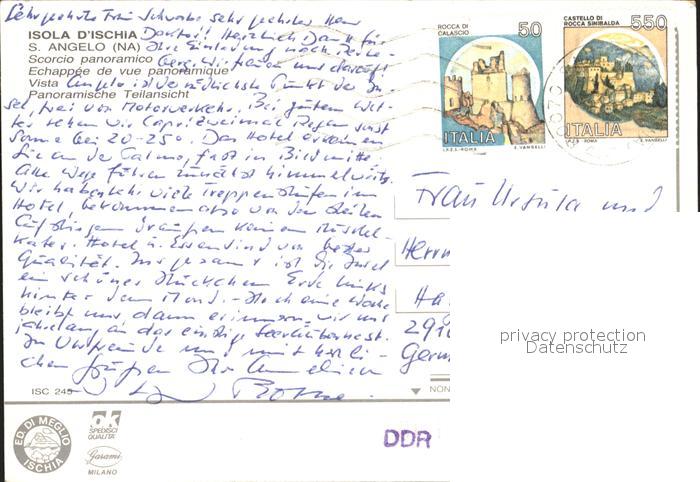 Sehr geehrte Frau Schwabe sehr geehrter Herr
ISOLA D'ISCHIA
Doktor! Herzlich Dank für
S. ANGELO (NA)
Ihre Einladung nach
Scorcio panoramico
Echappée de vue panoramique
Wir freuen uns darauf!
Vista
Angelo ist der südlichste Punkt der In-
Panoramische Teilansicht
sel, frei von Motorverkehr. Bei gutem Wet-
ter sehen wir Capri, zweimal Regen sonst
Sonne bei 20-25°. Das Hotel erkennen
Sie an der Calmo, fast in Bildmitte.
Alle Wege führen zunächst himmelwärts.
Wir haben viele Treppenstufen im
Hotel, bekommen aber von den steilen
Aufstiegen draußen keinen Muskel-
kater. Hotel u. Essen sind von bester
Qualität. Insgesamt ist die Insel
ein schönes Stückchen Erde links
hinter dem Mond. - Noch eine Woche
bleibt uns dann erinnern wir uns
jahrelang an das einzige
In Vorfreude und mit herzli-
chen Grüßen Ihr
ISC 245
ROCCA DI
CALASCIO
50
ITALIA
I.P.Z.S. - ROMA
E. VANGELLI
CASTELLO DI
ROCCA SINIBALDA
550
ITALIA
I.P.Z.S. - ROMA
E. VANGELLI
Frau Ursula und
Herrn
Ha
291
Germ
privacy protection
Datenschutz
NON
DDR
ED. DI MEGLIO
ISCHIA
ok
SPEDISCI
QUALITÀ
Garami
MILANO